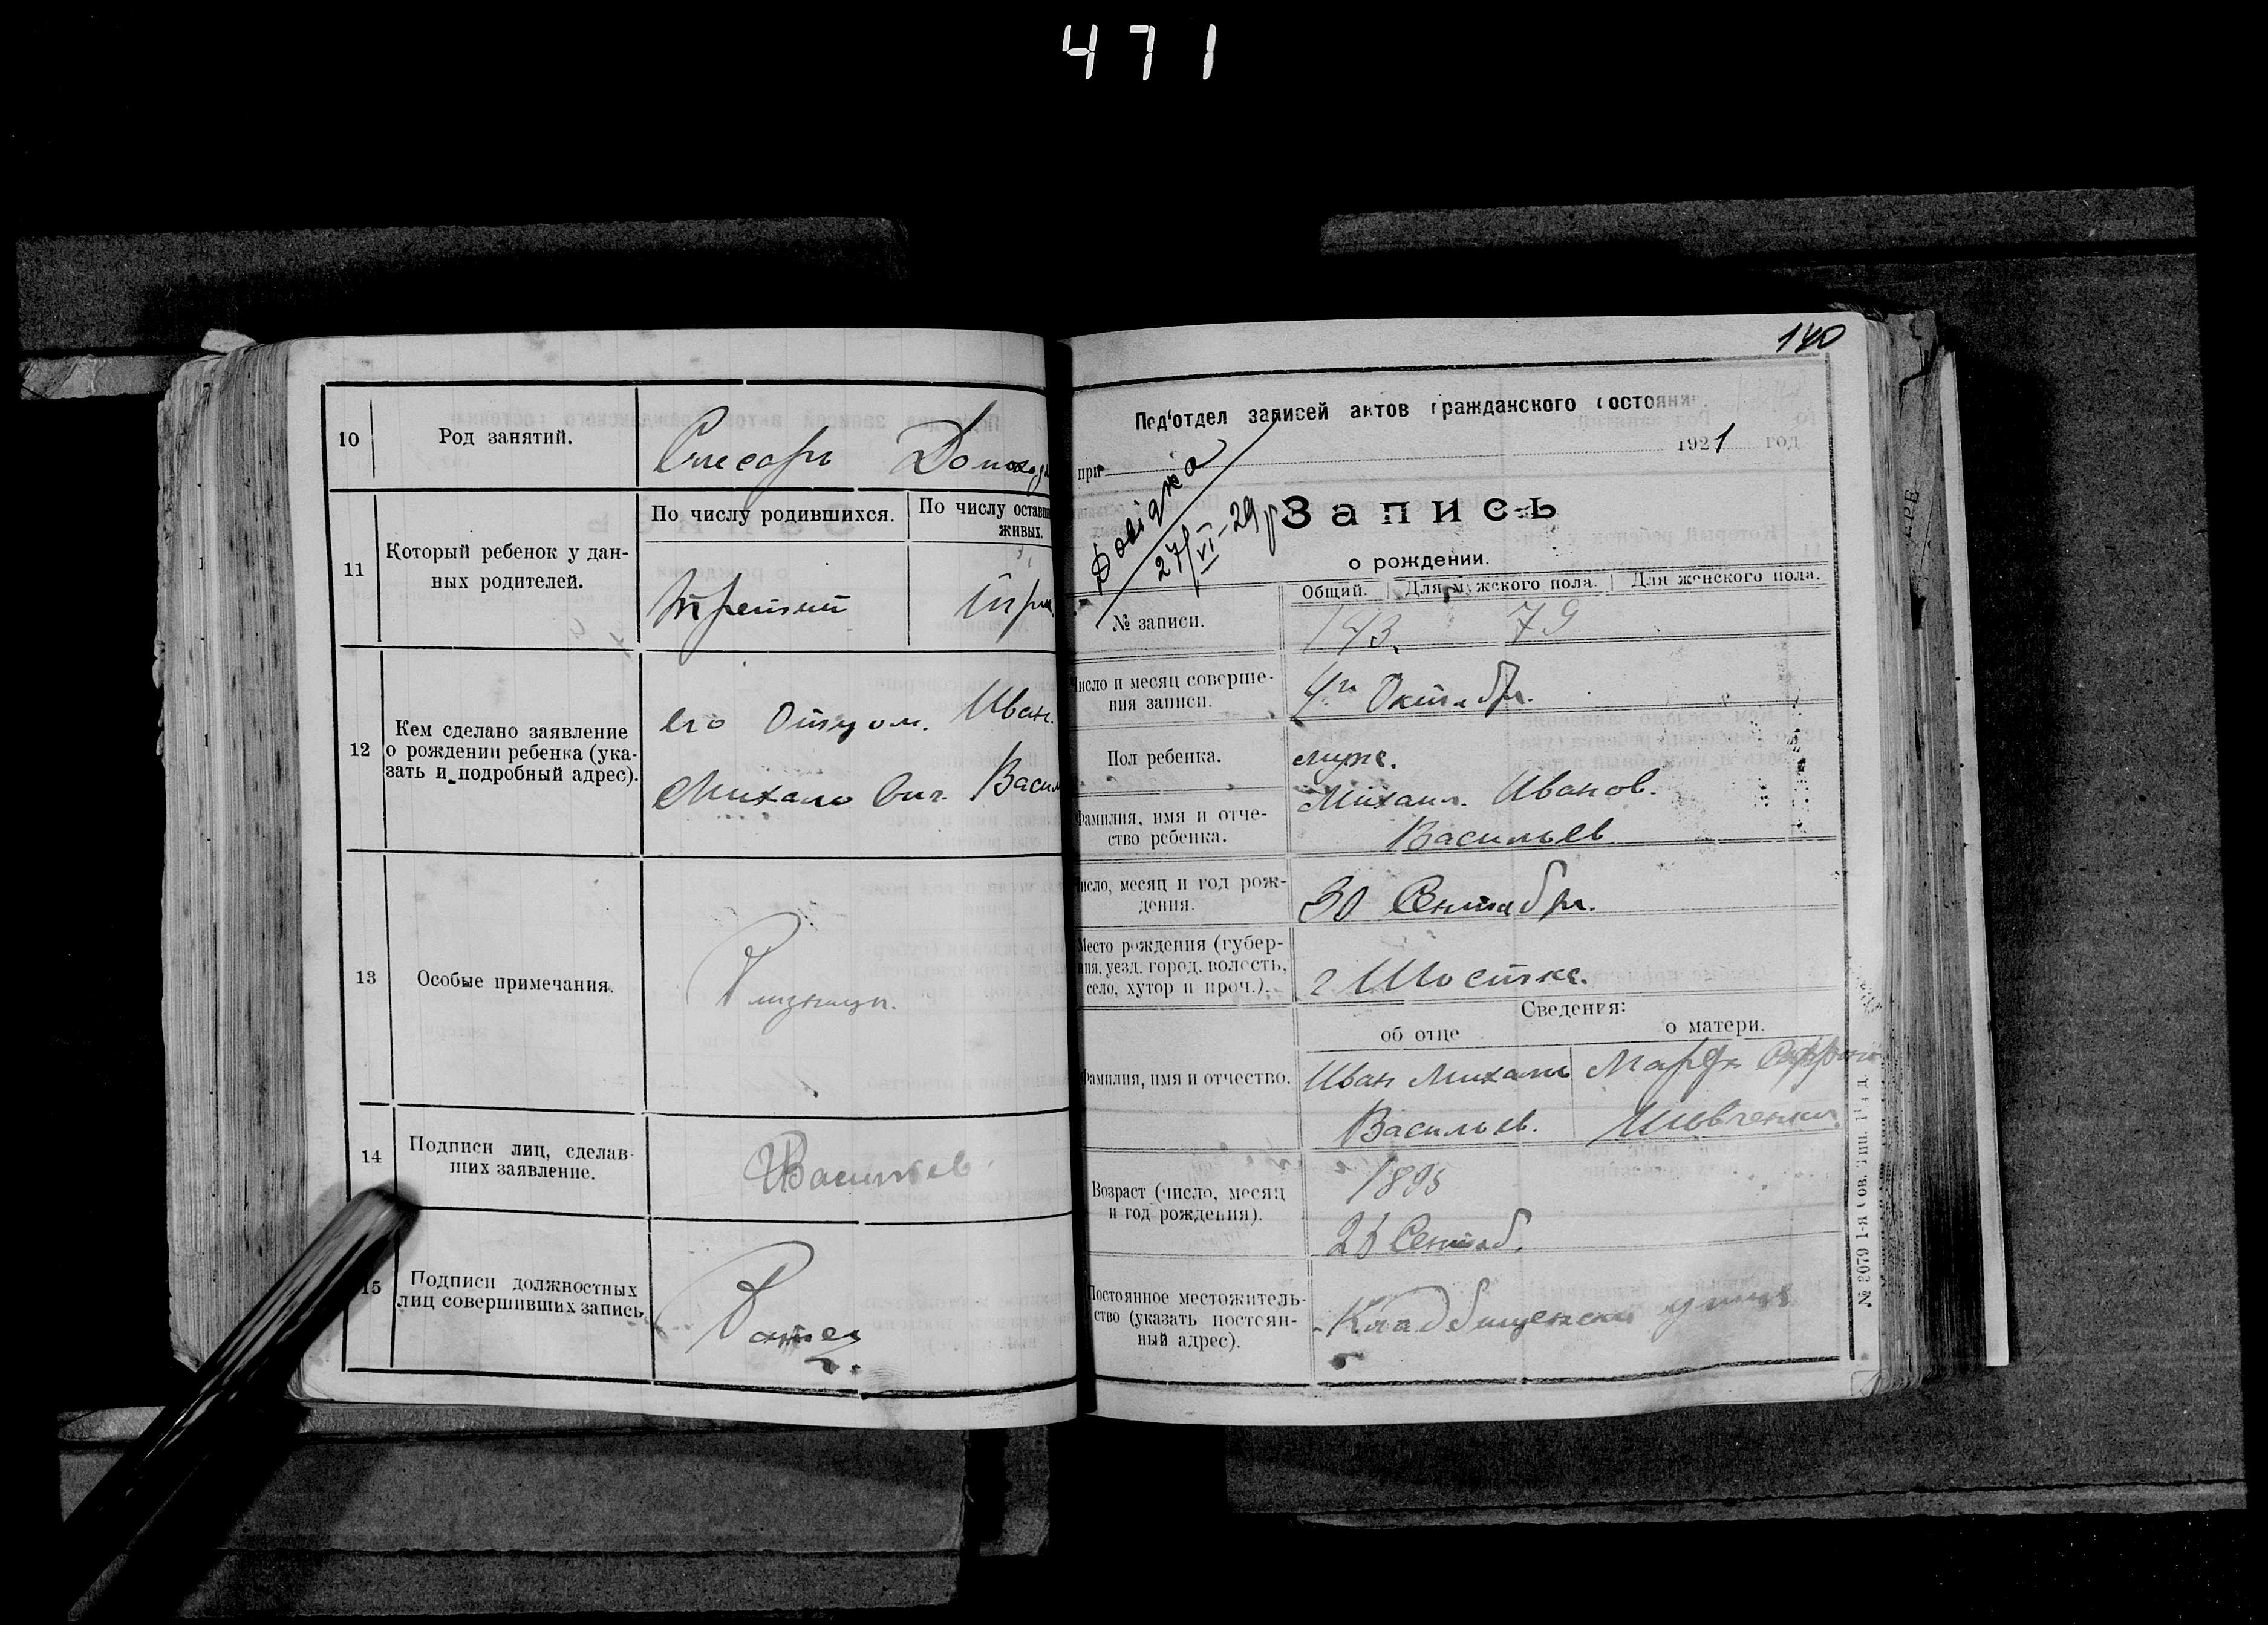 471
10
Род занятий.
Слесарь
11
Который ребенок у дан-
ных родителей.
По числу родившихся.
По числу оставш
живых.
Третий
12
Кем сделано заявление
о рождении ребенка (ука-
зать и подробный адрес).
его Отцом. Иван.
Михайлович. Васил
13
Особые примечания.
14
Подписи лиц, сделав-
ших заявление.
Васильев
15
Подписи должностных
лиц совершивших запись
140
Под'отдел записей актов гражданского состояни
при 1921 год
Довідка
27/VI-29 р
Запись
о рождении.
№ записи.
Общий. Для мужского пола. Для женского пола.
143. 79
Число и месяц соверше-
ния записи.
4го Октября.
Пол ребенка.
муж.
Фамилия, имя и отче-
ство ребенка.
Михаил. Иванов.
Васильев
число, месяц и год рож-
дения.
30 Сентября.
Место рождения (губер-
ния, уезд, город, волость,
село, хутор и проч.).
г Шостка.
Сведения:
об отце о матери.
Фамилия, имя и отчество.
Иван Михайл
Васильев.
Марфа
Шевченко.
Возраст (число, месяц
и год рождения).
Сентяб.
Постоянное местожитель-
ство (указать постоян-
ный адрес).
Кладбищенска улица
№ 3079 1-я Сов. Тип.